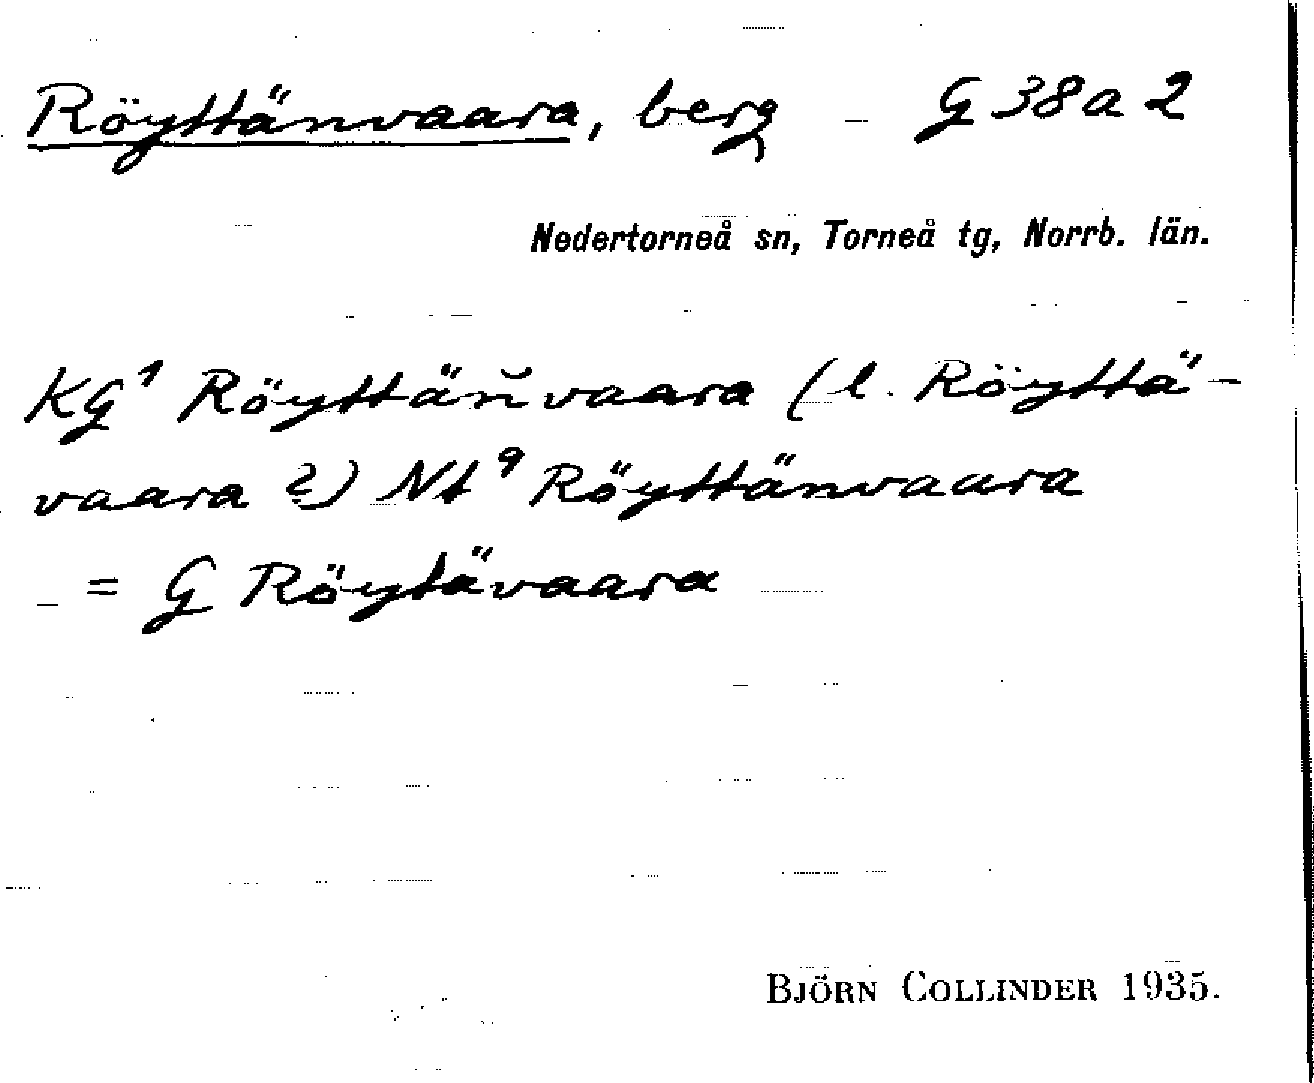 Röyttänvaara, berg G 38 a 2
Nedertorneå sn, Torneå tg, Norrb. län.
KG¹ Röyttän̆vaara (l. Röyttä-
vaara ?) Nt⁹ Röyttänvaara
= G Röytävaara
BJÖRN COLLINDER 1935.